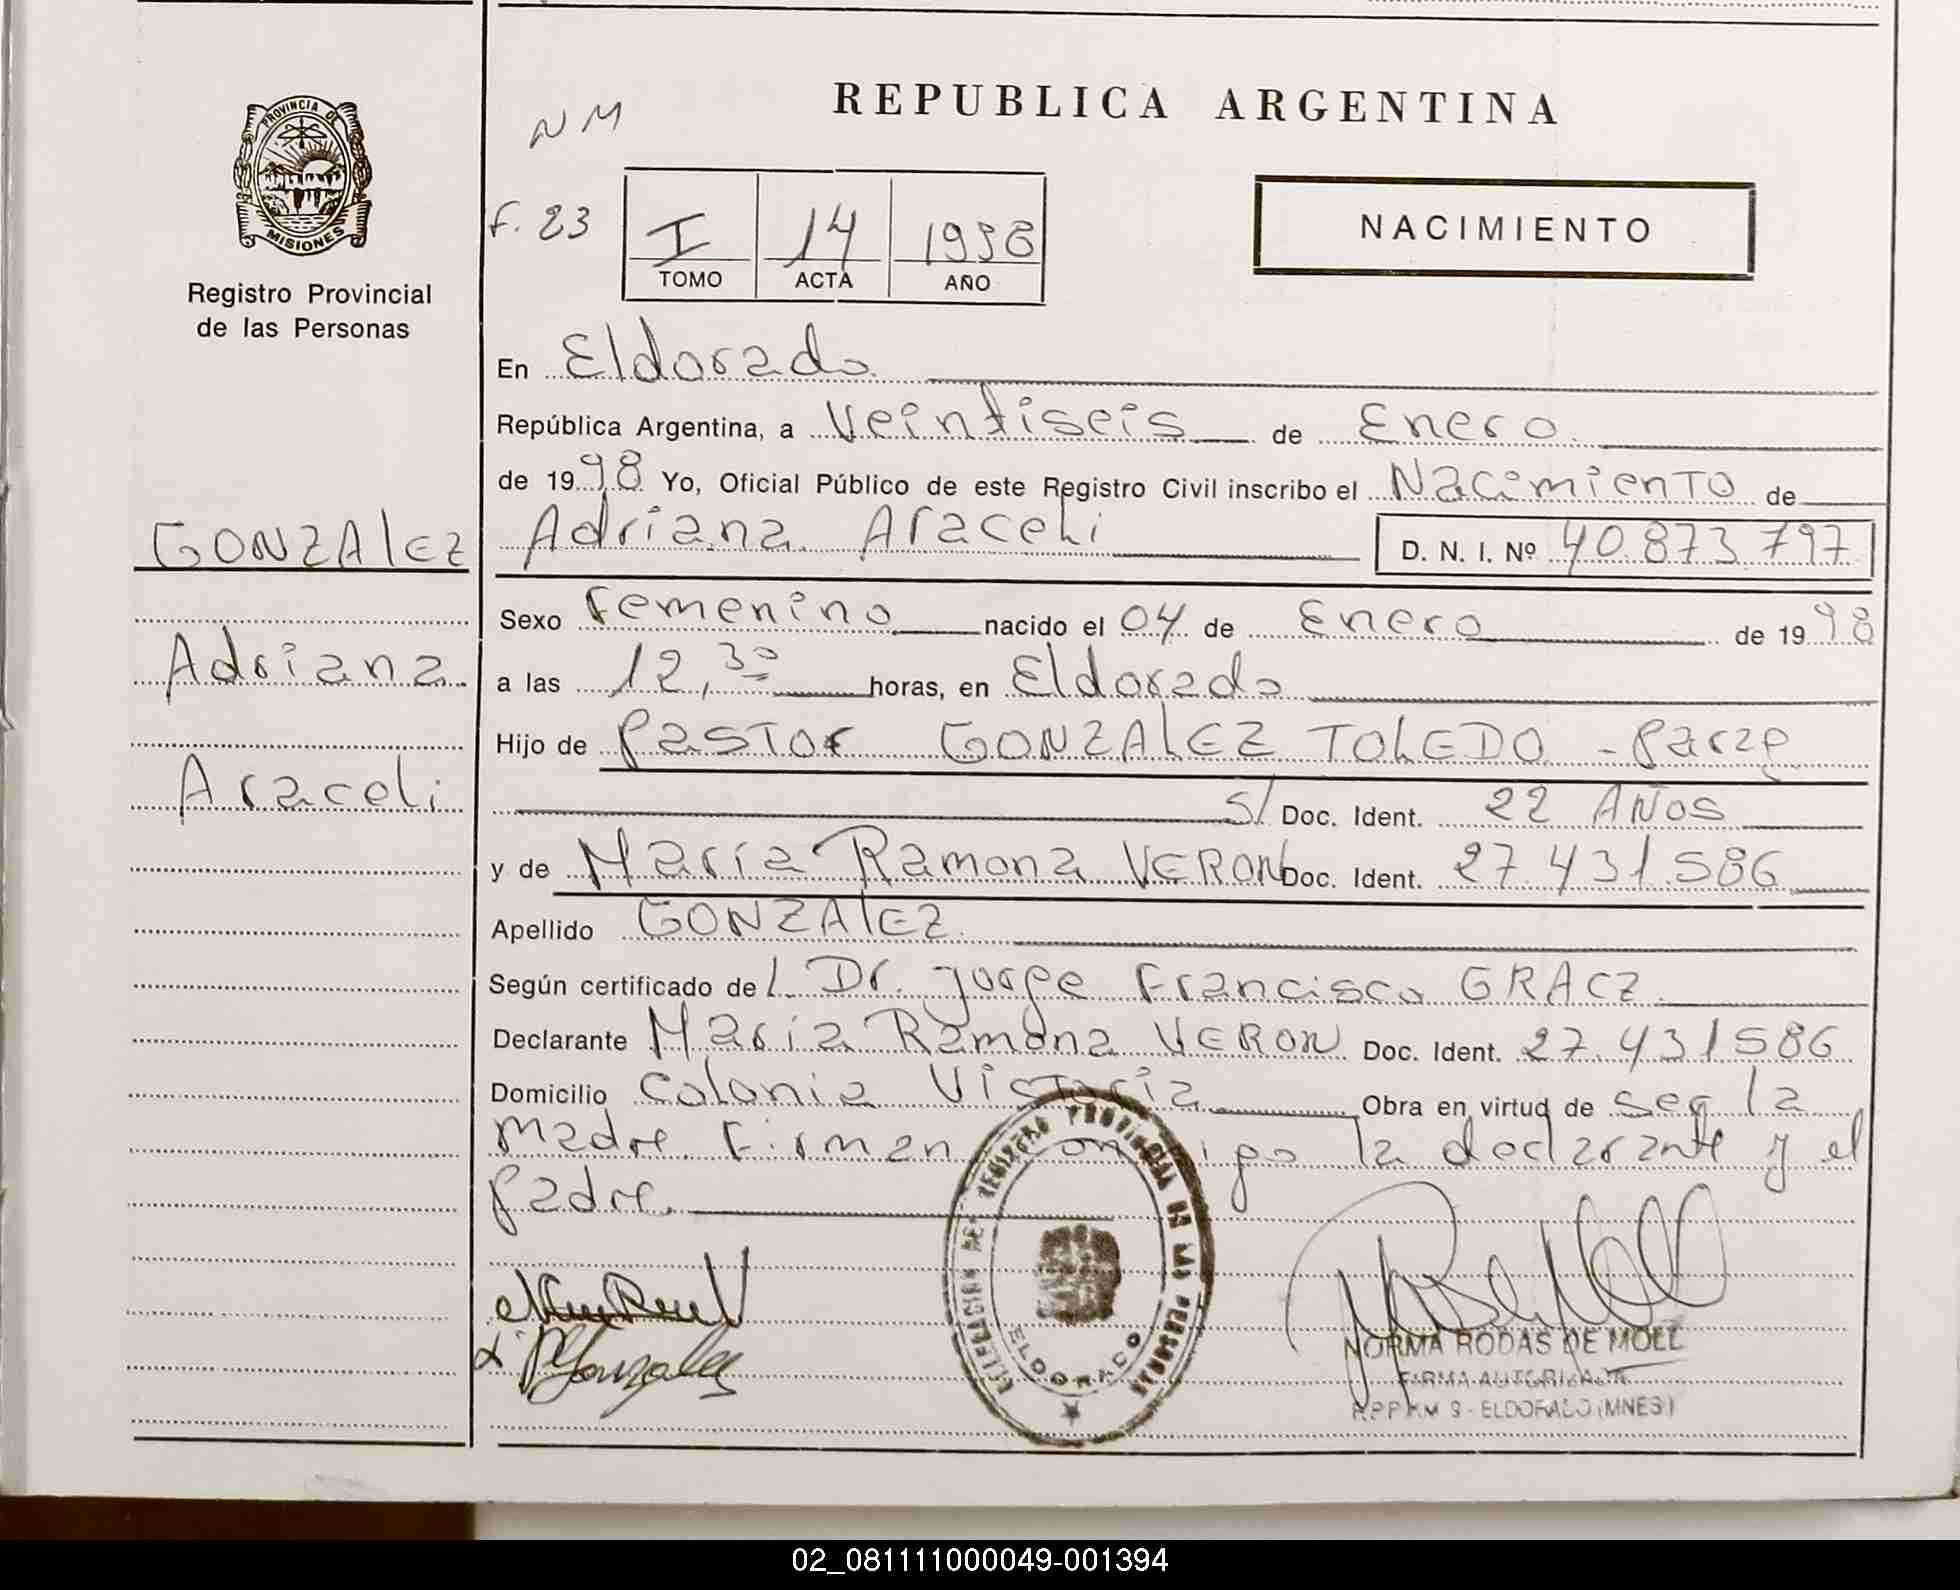 REPUBLICA ARGENTINA
NM
PROVINCIA DE
MISIONES
Registro Provincial
de las Personas
F. 23
I
TOMO
14
ACTA
1998
AÑO
NACIMIENTO
En Eldorado
República Argentina, a Veintiseis de Enero
de 1998 Yo, Oficial Público de este Registro Civil inscribo el Nacimiento de
GONZALEZ
Adriana Araceli D. N. I. Nº 40.873.797
Sexo Femenino nacido el 04 de Enero de 1998
Adriana
a las 12,30 horas, en Eldorado
Hijo de Pastor GONZALEZ TOLEDO - parag
Araceli
S/ Doc. Ident. 22 AÑOS
y de María Ramona VERON Doc. Ident. 27.431.586
Apellido GONZALEZ
Según certificado de l Dr. Jorge Francisco GRACZ
Declarante María Ramona VERON Doc. Ident. 27.431586
Domicilio Colonia Victoria Obra en virtud de ser la
madre. Firman conmigo la declarante y el
padre.
DELEGACION DEL REGISTRO PROVINCIAL DE LAS PERSONAS
ELDORADO
P Gonzalez
NORMA RODAS DE MOLL
FIRMA AUTORIZADA
ELDORADO (MNES)
02_081111000049-001394